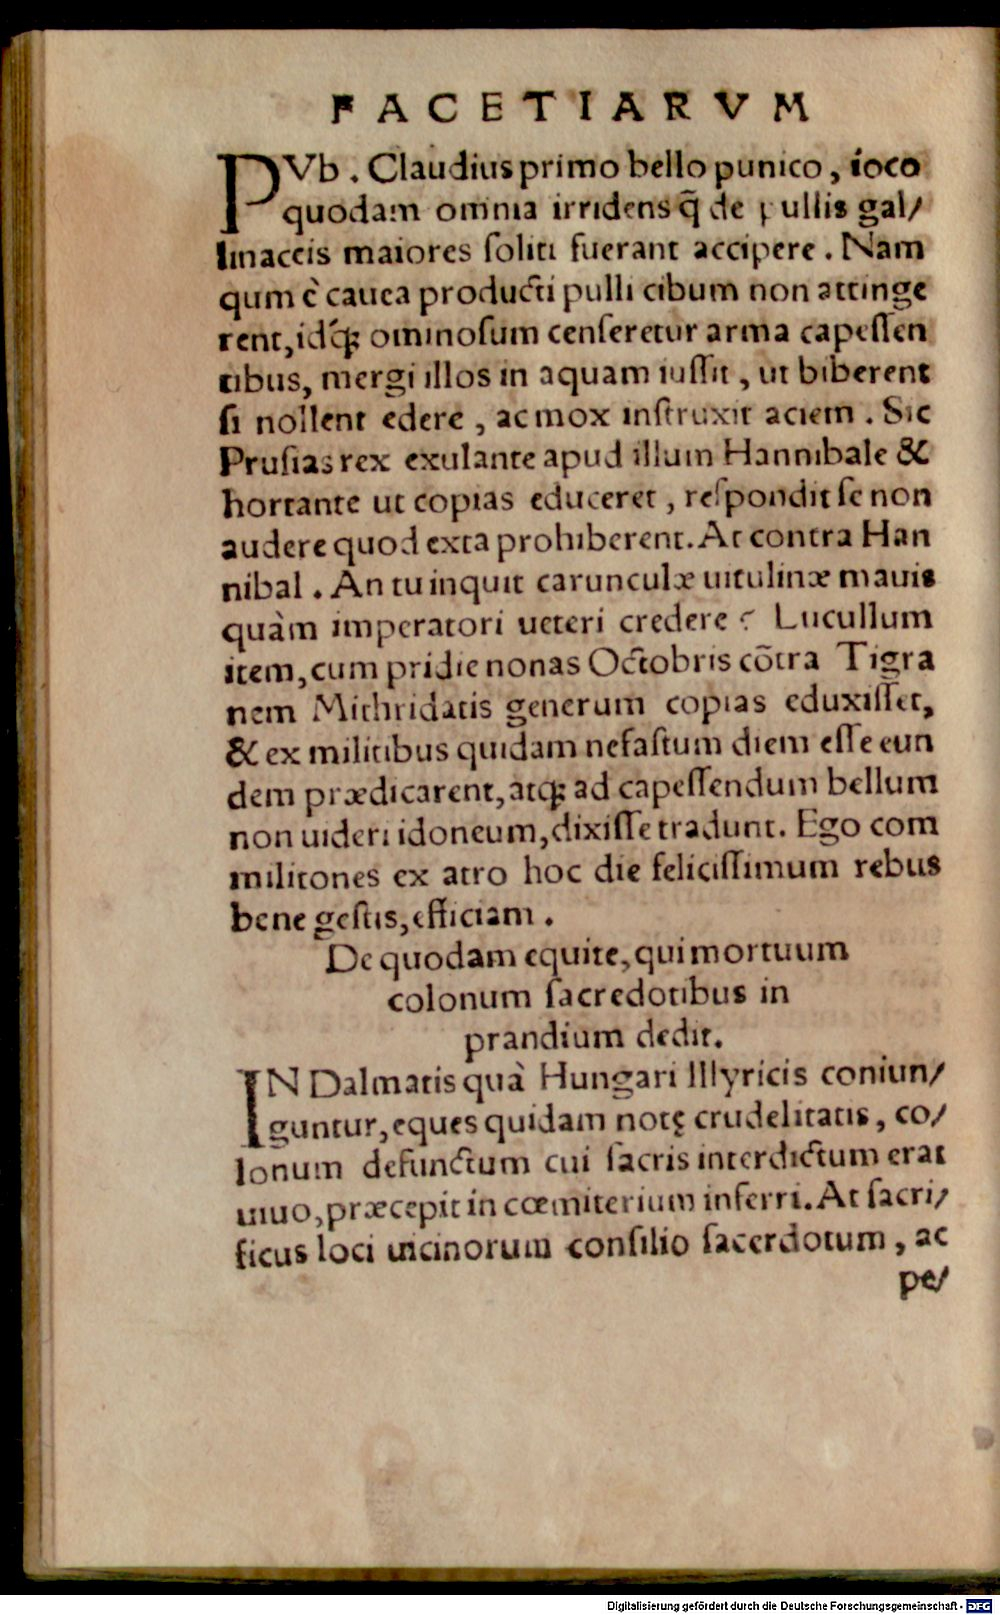 FACETIARVM
PVb. Claudius primo bello punico, ioco
quodam omnia irridens q̃ de pullis gal/
linaceis maiores soliti fuerant accipere. Nam
qum è cauea producti pulli cibum non attinge
rent, idq́ꝫ ominosum censeretur arma capessen
tibus, mergi illos in aquam iussit, ut biberent
si nollent edere, ac mox instruxit aciem. Sic
Prusias rex exulante apud illum Hannibale &
hortante ut copias educeret, respondit se non
audere quod exta prohiberent. At contra Han
nibal. An tu inquit carunculæ uitulinæ mauis
quàm imperatori ueteri credere? Lucullum
item, cum pridie nonas Octobris cõtra Tigra
nem Mithridatis generum copias eduxisset,
& ex militibus quidam nefastum diem esse eun
dem prædicarent, atqꝫ ad capessendum bellum
non uideri idoneum, dixisse tradunt. Ego com
militones ex atro hoc die felicissimum rebus
bene gestis, efficiam.
De quodam equite, qui mortuum
colonum sacredotibus in
prandium dedit.
IN Dalmatis quà Hungari Illyricis coniun/
guntur, eques quidam notę crudelitatis, co/
lonum defunctum cui sacris interdictum erat
uiuo, præcepit in cœmiterium inferri. At sacri/
ficus loci uicinorum consilio sacerdotum, ac
pe/
Digitalisierung gefördert durch die Deutsche Forschungsgemeinschaft - DFG